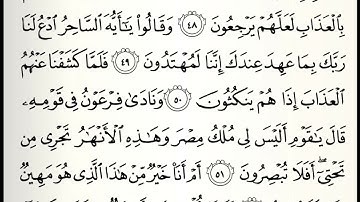 بِٱلۡعَذَابِ لَعَلَّهُمۡ يَرۡجِعُونَ ٤٨ وَقَالُواْ يَٰٓأَيُّهَ ٱلسَّاحِرُ ٱدۡعُ لَنَا
رَبَّكَ بِمَا عَهِدَ عِندَكَ إِنَّنَا لَمُهۡتَدُونَ ٤٩ فَلَمَّا كَشَفۡنَا عَنۡهُمُ
ٱلۡعَذَابَ إِذَا هُمۡ يَنكُثُونَ ٥٠ وَنَادَىٰ فِرۡعَوۡنُ فِي قَوۡمِهِۦ
قَالَ يَٰقَوۡمِ أَلَيۡسَ لِي مُلۡكُ مِصۡرَ وَهَٰذِهِ ٱلۡأَنۡهَٰرُ تَجۡرِي مِن
تَحۡتِيٓۚ أَفَلَا تُبۡصِرُونَ ٥١ أَمۡ أَنَا۠ خَيۡرٞ مِّنۡ هَٰذَا ٱلَّذِي هُوَ مَهِينٞ